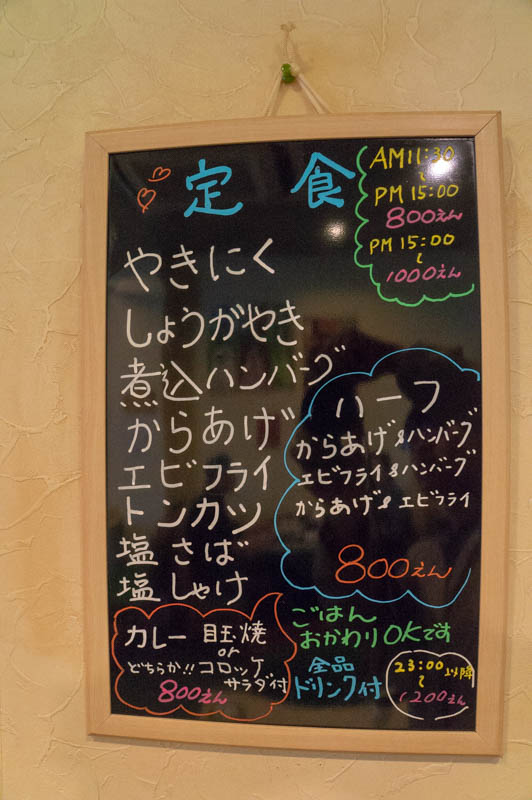 定食
AM11:30
～
PM 15:00
800えん
PM 15:00
～
1000えん
やきにく
しょうがやき
煮込ハンバーグ
からあげ
エビフライ
トンカツ
塩さば
塩しゃけ
ハーフ
からあげ&ハンバーグ
エビフライ&ハンバーグ
からあげ&エビフライ
800えん
カレー 目玉焼
or
どちらか!! コロッケ
サラダ付
800えん
ごはん
おかわりOKです
全品
ドリンク付
23:00以降
～
1200えん